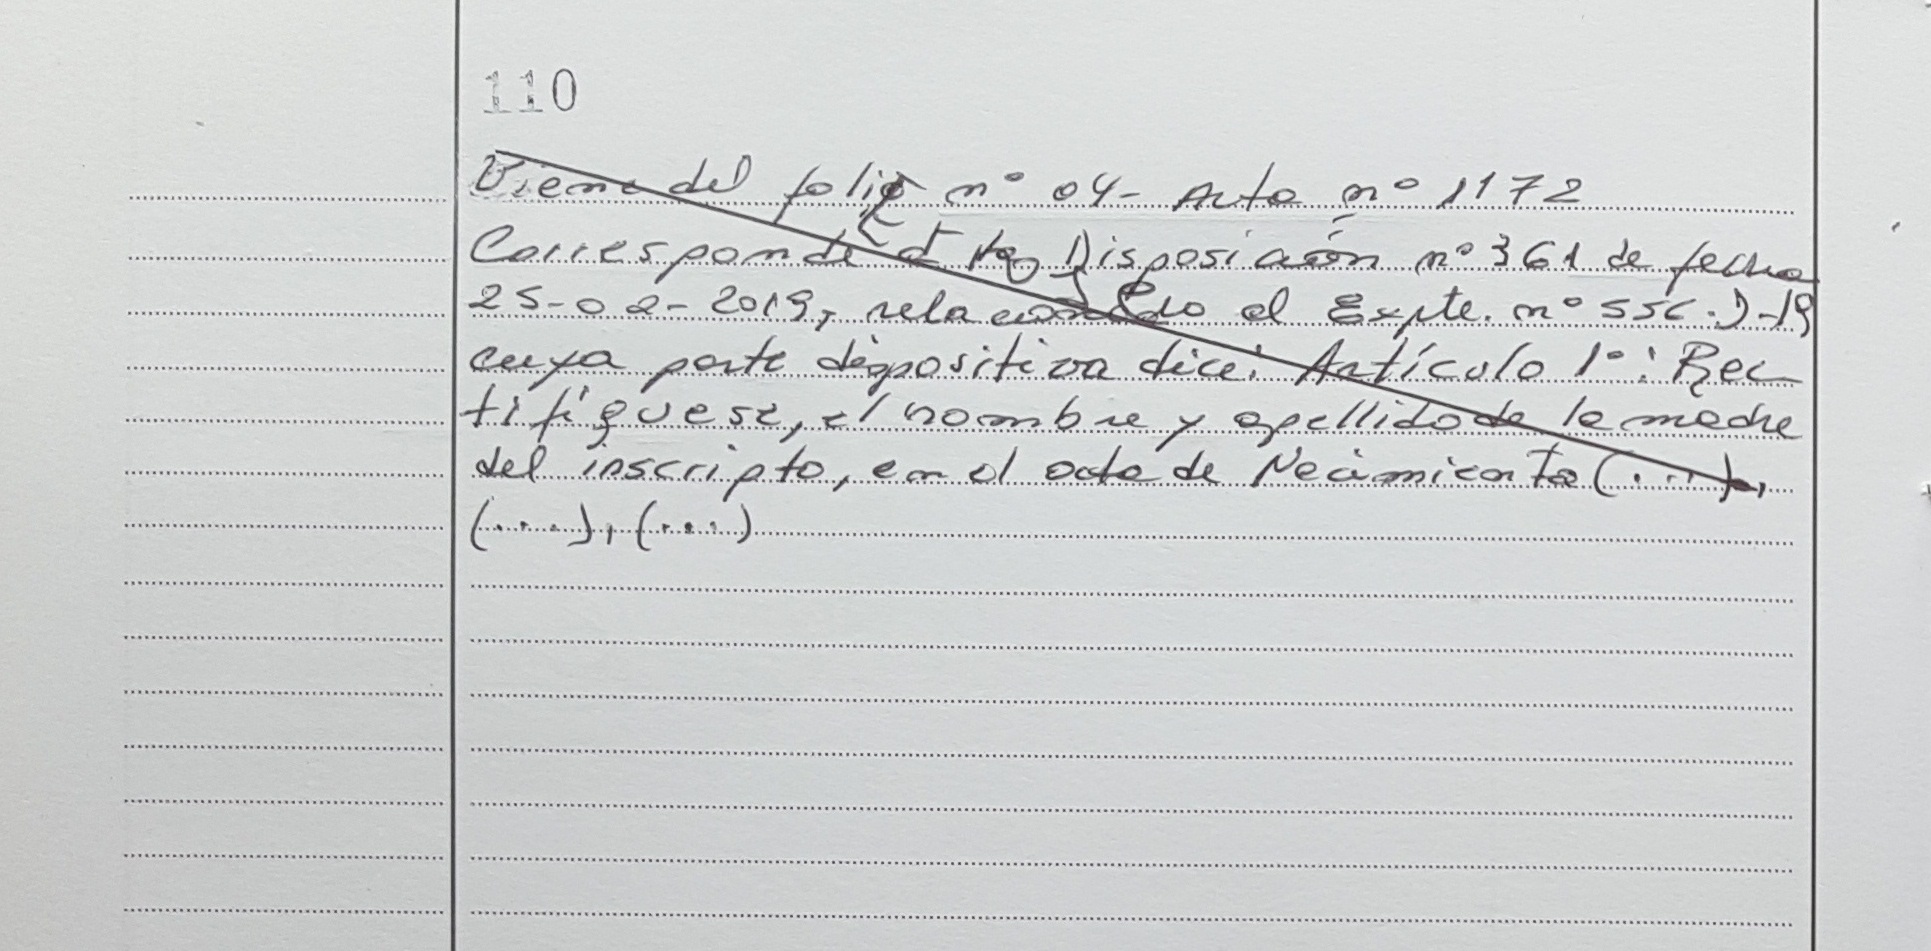 110
Viene del folio nº 04- Acta nº 1172
Corresponde a la Disposición nº 361 de fecha
25-02-2019, relacionado el Expte. nº 556.D-19
cuya parte dispositiva dice: Artículo 1º: Rec
tifíquese, el nombre y apellido de la madre
del inscripto, en el acta de Nacimiento (...),
(....), (....)